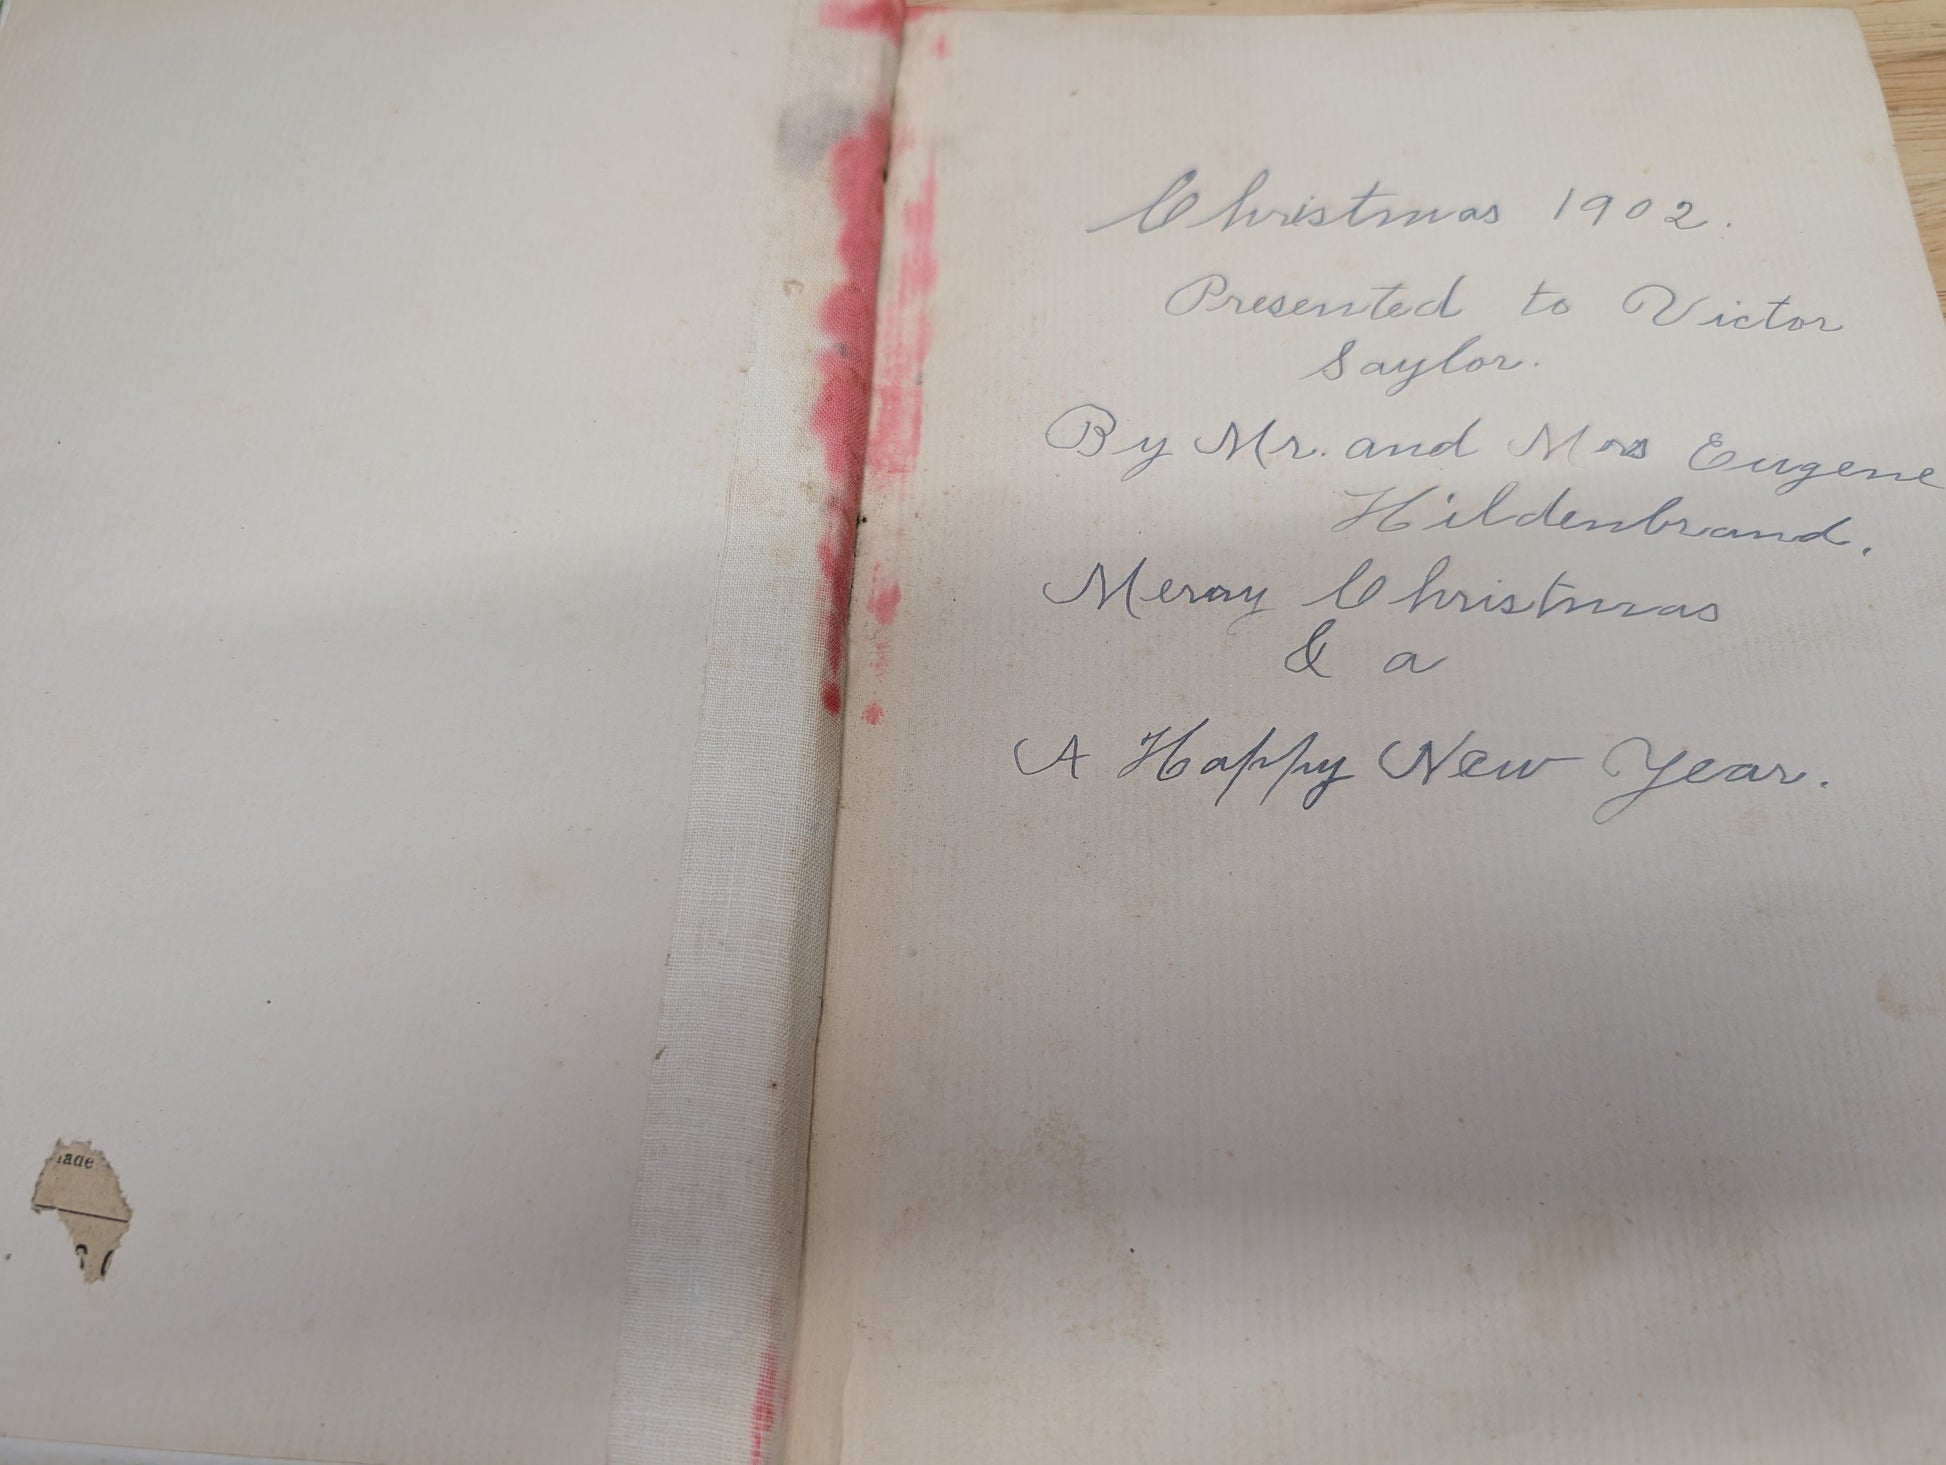 Christmas 1902.
Presented to Victor
Saylor.
By Mr. and Mrs Eugene
Hildenbrand.
Merry Christmas
& a
A Happy New Year.